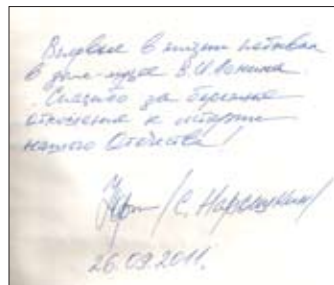 Впервые в жизни побывал
в доме-музее В.И. Ленина.
Спасибо за бережное
отношение к истории
нашего Отечества!
/С. Нарышкин/
26.09.2011.